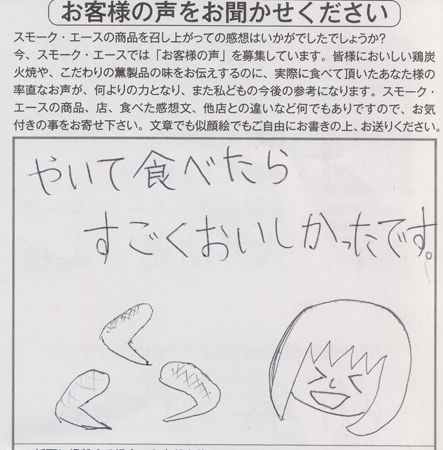 お客様の声をお聞かせください
スモーク・エースの商品を召し上がっての感想はいかがでしたでしょうか?
今、スモーク・エースでは「お客様の声」を募集しています。皆様においしい鶏炭
火焼や、こだわりの薫製品の味をお伝えするのに、実際に食べて頂いたあなた様の
率直なお声が、何よりの力となり、また私どもの今後の参考になります。スモーク・
エースの商品、店、食べた感想文、他店との違いなど何でもありですので、お気
付きの事をお寄せ下さい。文章でも似顔絵でもご自由にお書きの上、お送りください。
やいて食べたら
すごくおいしかったです。